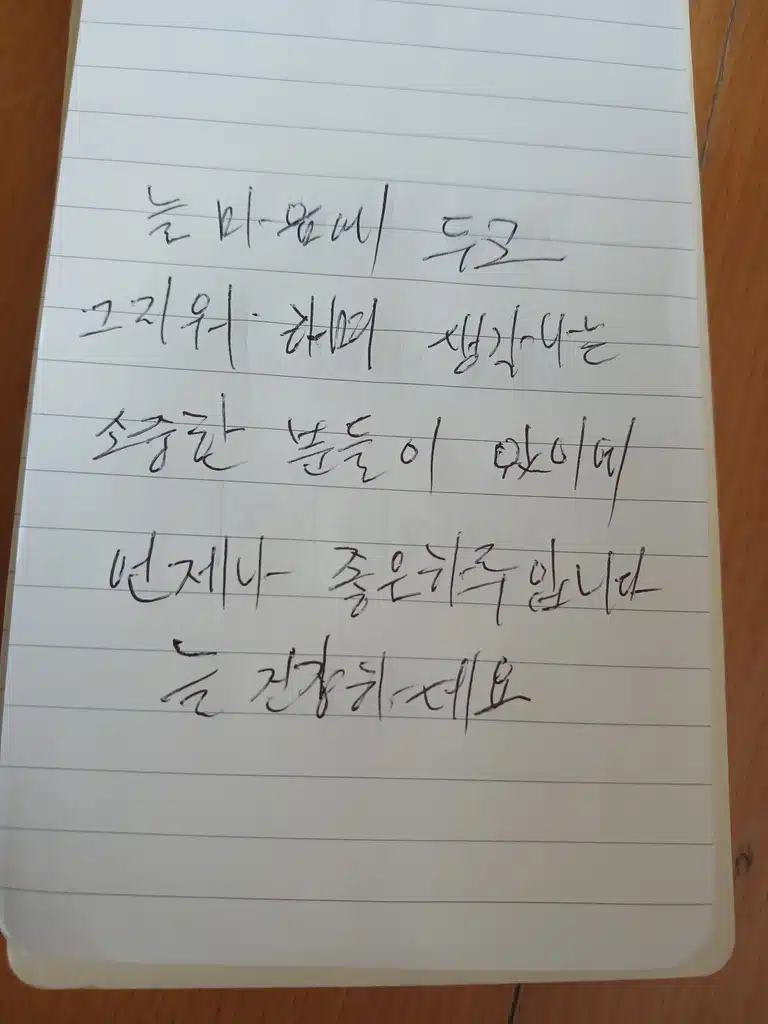 늘 마음에 두고
그리워 하며 생각나는
소중한 분들이 있이에
언제나 좋은하루입니다
늘 건강하세요